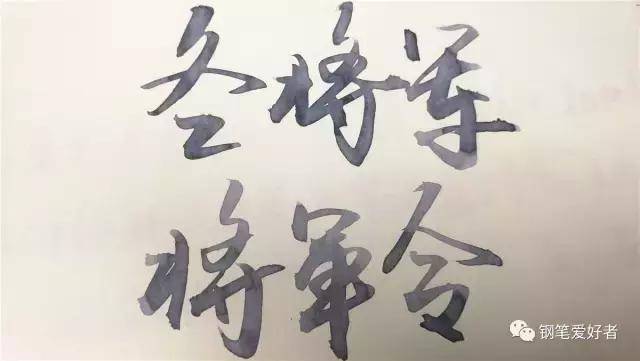 冬将军
将军令
钢笔爱好者